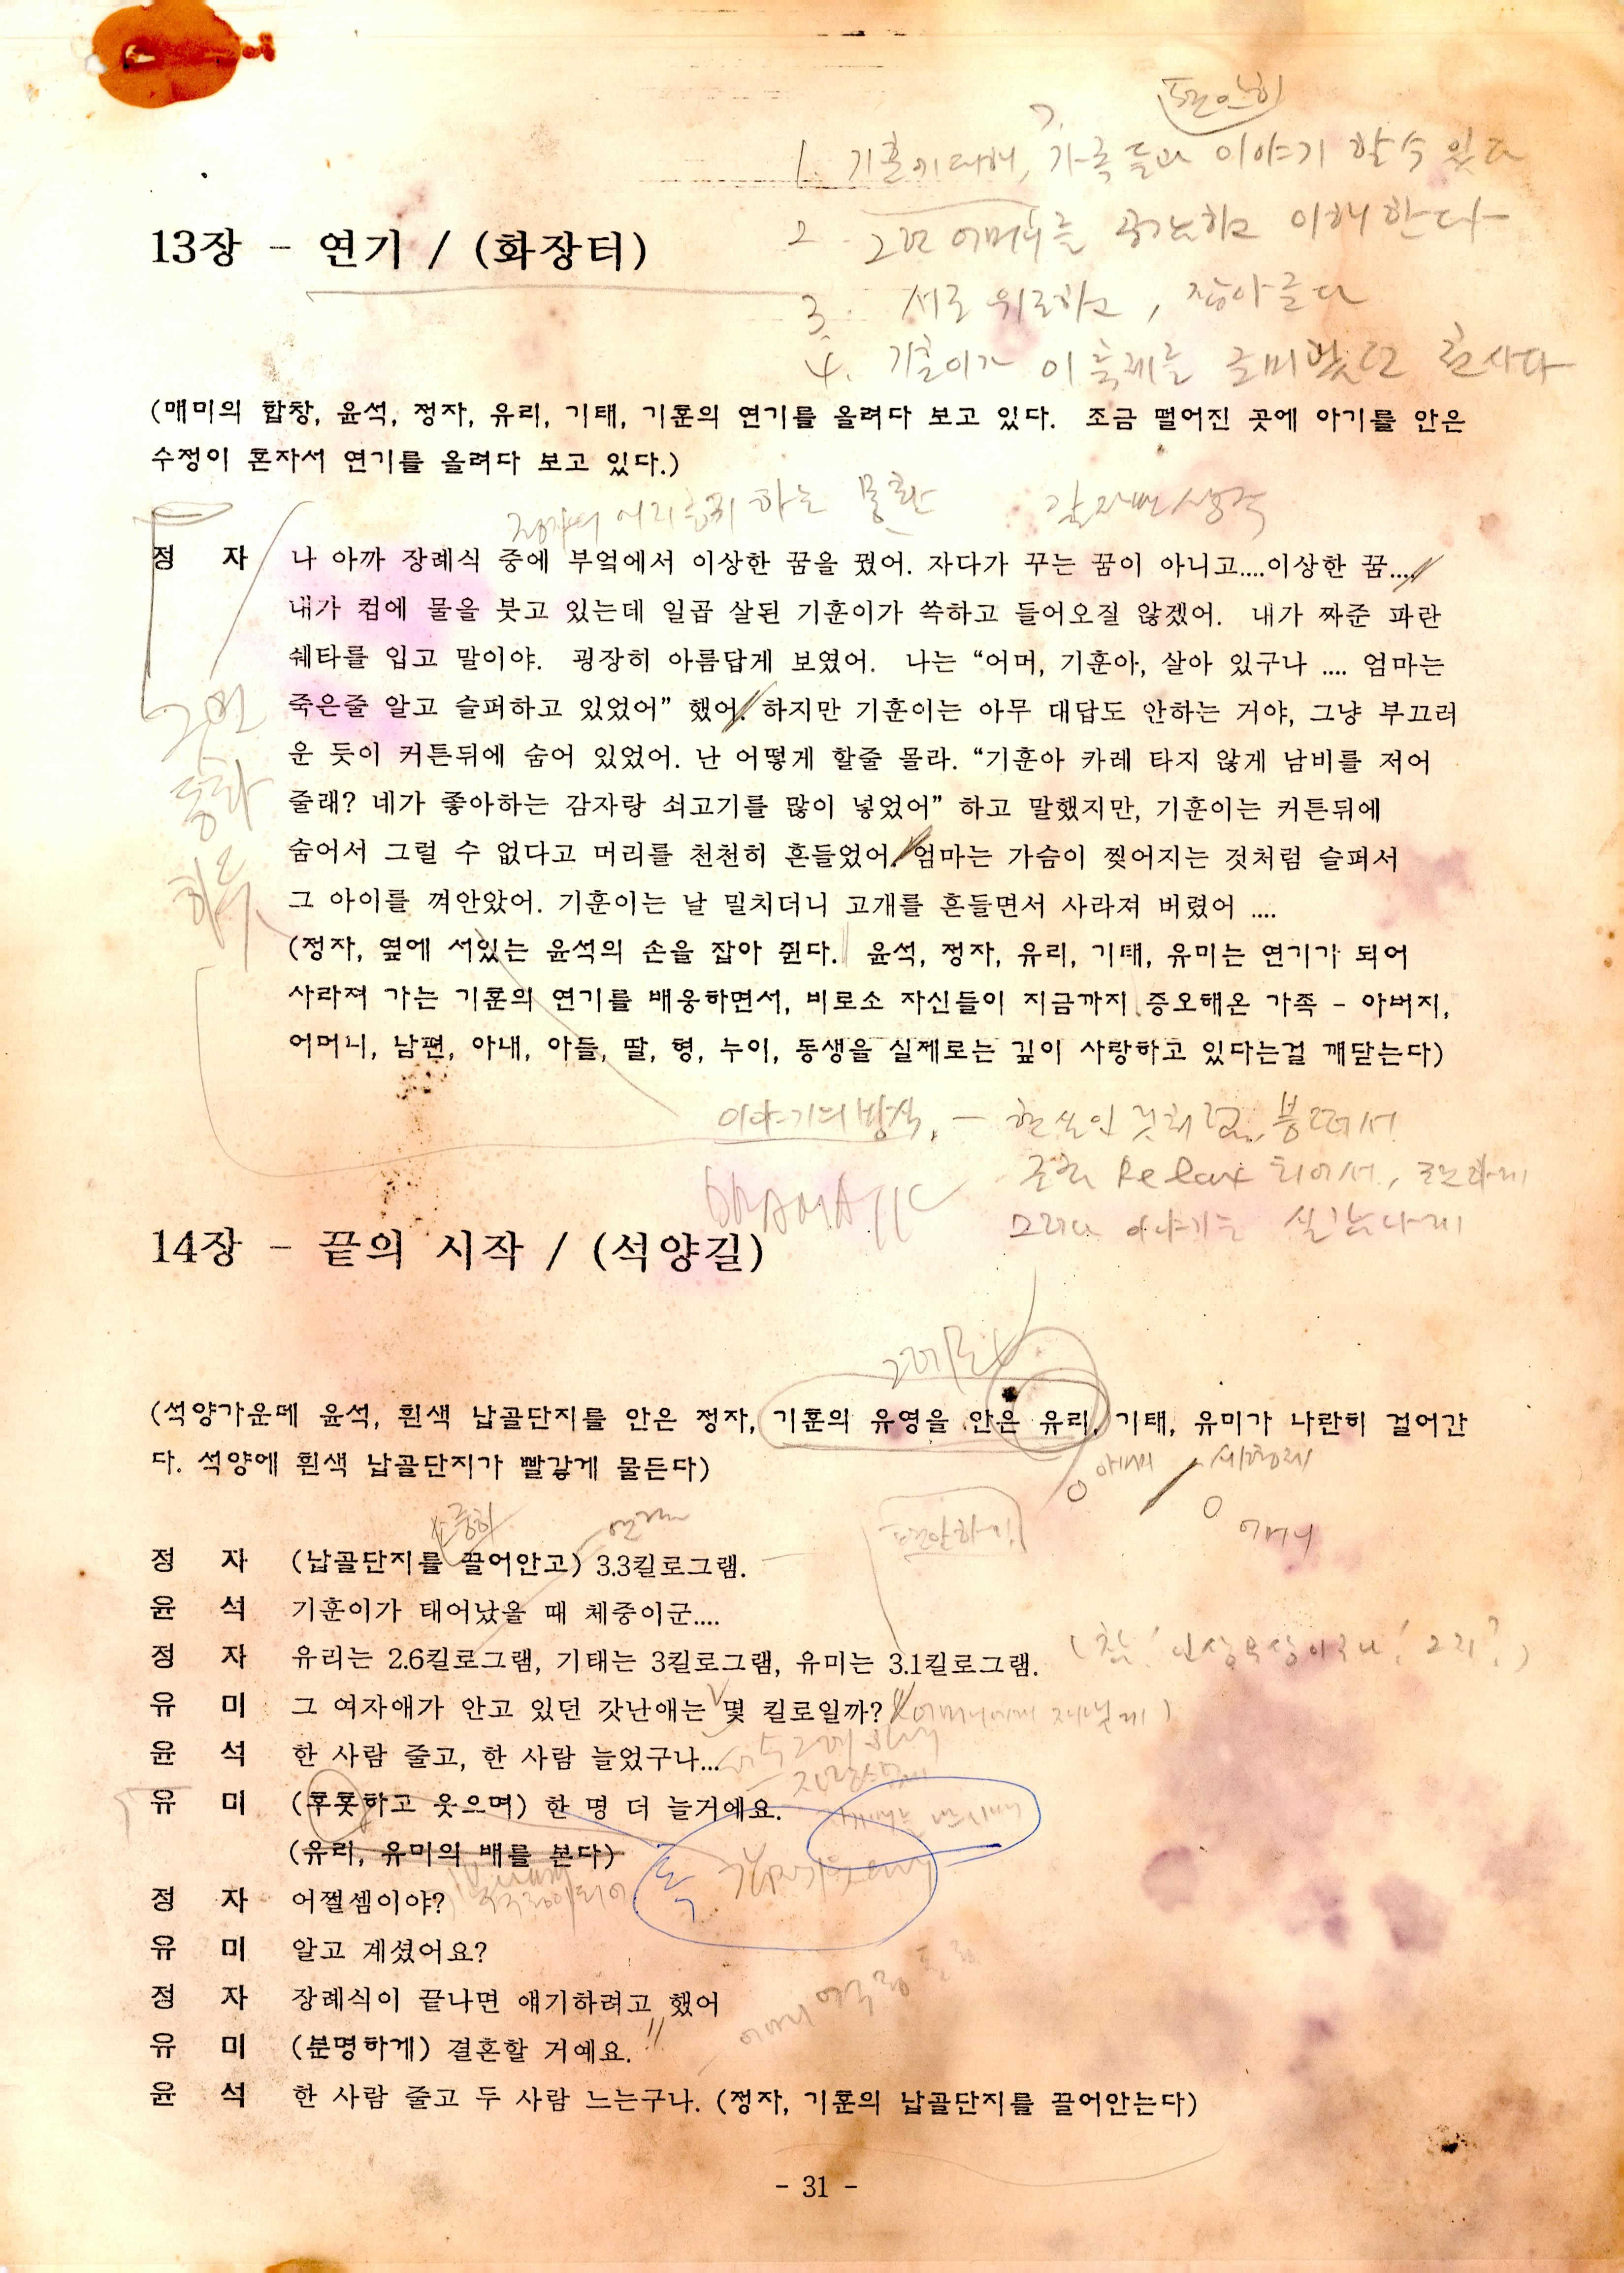 편안히
1. 기훈에 대해, 가족들과 이야기 할 수 있다
2. 그런 어머니를 공감하고 이해한다
3. 서로 위로하고,
4. 기훈이가 이 축제를
13장 - 연기 / (화장터)
(매미의 합창, 윤석, 정자, 유리, 기태, 기훈의 연기를 올려다 보고 있다. 조금 떨어진 곳에 아기를 안은
수정이 혼자서 연기를 올려다 보고 있다.)
정 자 나 아까 장례식 중에 부엌에서 이상한 꿈을 꿨어. 자다가 꾸는 꿈이 아니고....이상한 꿈....
내가 컵에 물을 붓고 있는데 일곱 살된 기훈이가 쓱하고 들어오질 않겠어. 내가 짜준 파란
쉐타를 입고 말이야. 굉장히 아름답게 보였어. 나는 “어머, 기훈아, 살아 있구나 .... 엄마는
죽은줄 알고 슬퍼하고 있었어” 했어. 하지만 기훈이는 아무 대답도 안하는 거야, 그냥 부끄러
운 듯이 커튼뒤에 숨어 있었어. 난 어떻게 할줄 몰라. “기훈아 카레 타지 않게 남비를 저어
줄래? 네가 좋아하는 감자랑 쇠고기를 많이 넣었어” 하고 말했지만, 기훈이는 커튼뒤에
숨어서 그럴 수 없다고 머리를 천천히 흔들었어. 엄마는 가슴이 찢어지는 것처럼 슬퍼서
그 아이를 껴안았어. 기훈이는 날 밀치더니 고개를 흔들면서 사라져 버렸어 ....
(정자, 옆에 서있는 윤석의 손을 잡아 쥔다. 윤석, 정자, 유리, 기태, 유미는 연기가 되어
사라져 가는 기훈의 연기를 배웅하면서, 비로소 자신들이 지금까지 증오해온 가족 - 아버지,
어머니, 남편, 아내, 아들, 딸, 형, 누이, 동생을 실제로는 깊이 사랑하고 있다는걸 깨닫는다)
이야기의 방식, -
Relax 되어서,
DRAMATIC
14장 - 끝의 시작 / (석양길)
(석양가운데 윤석, 흰색 납골단지를 안은 정자, 기훈의 유영을 안은 유리, 기태, 유미가 나란히 걸어간
다. 석양에 흰색 납골단지가 빨갛게 물든다)
어머니
정 자 (납골단지를 끌어안고) 3.3킬로그램.
윤 석 기훈이가 태어났을 때 체중이군....
정 자 유리는 2.6킬로그램, 기태는 3킬로그램, 유미는 3.1킬로그램.
유 미 그 여자애가 안고 있던 갓난애는 몇 킬로일까?
윤 석 한 사람 줄고, 한 사람 늘었구나...
유 미 (흐뭇하고 웃으며) 한 명 더 늘거에요.
(유리, 유미의 배를 본다)
정 자 어쩔셈이야?
유 미 알고 계셨어요?
정 자 장례식이 끝나면 얘기하려고 했어
유 미 (분명하게) 결혼할 거예요.
윤 석 한 사람 줄고 두 사람 느는구나. (정자, 기훈의 납골단지를 끌어안는다)
- 31 -